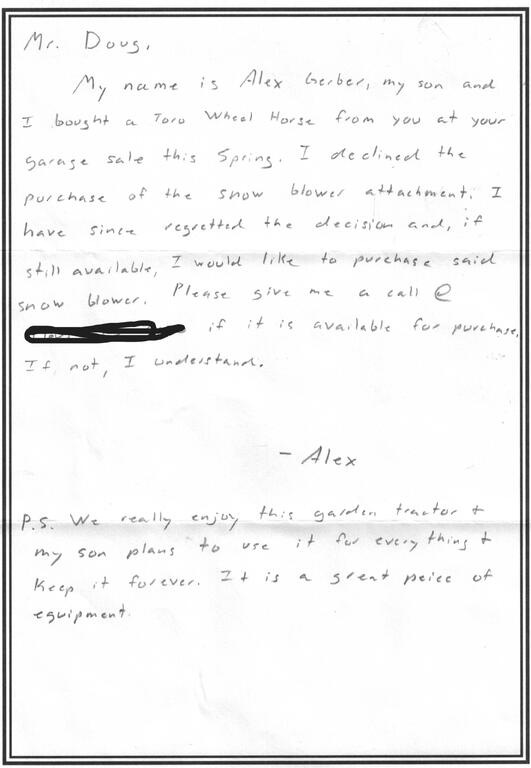 Mr. Doug,
My name is Alex Gerber, my son and
I bought a Toro Wheel Horse from you at your
garage sale this Spring. I declined the
purchase of the snow blower attachment. I
have since regretted the decision and, if
still available, I would like to purchase said
snow blower. Please give me a call @
if it is available for purchase.
If not, I understand.
- Alex
P.S. We really enjoy this garden tractor +
my son plans to use it for everything +
Keep it forever. It is a great peice of
equipment.